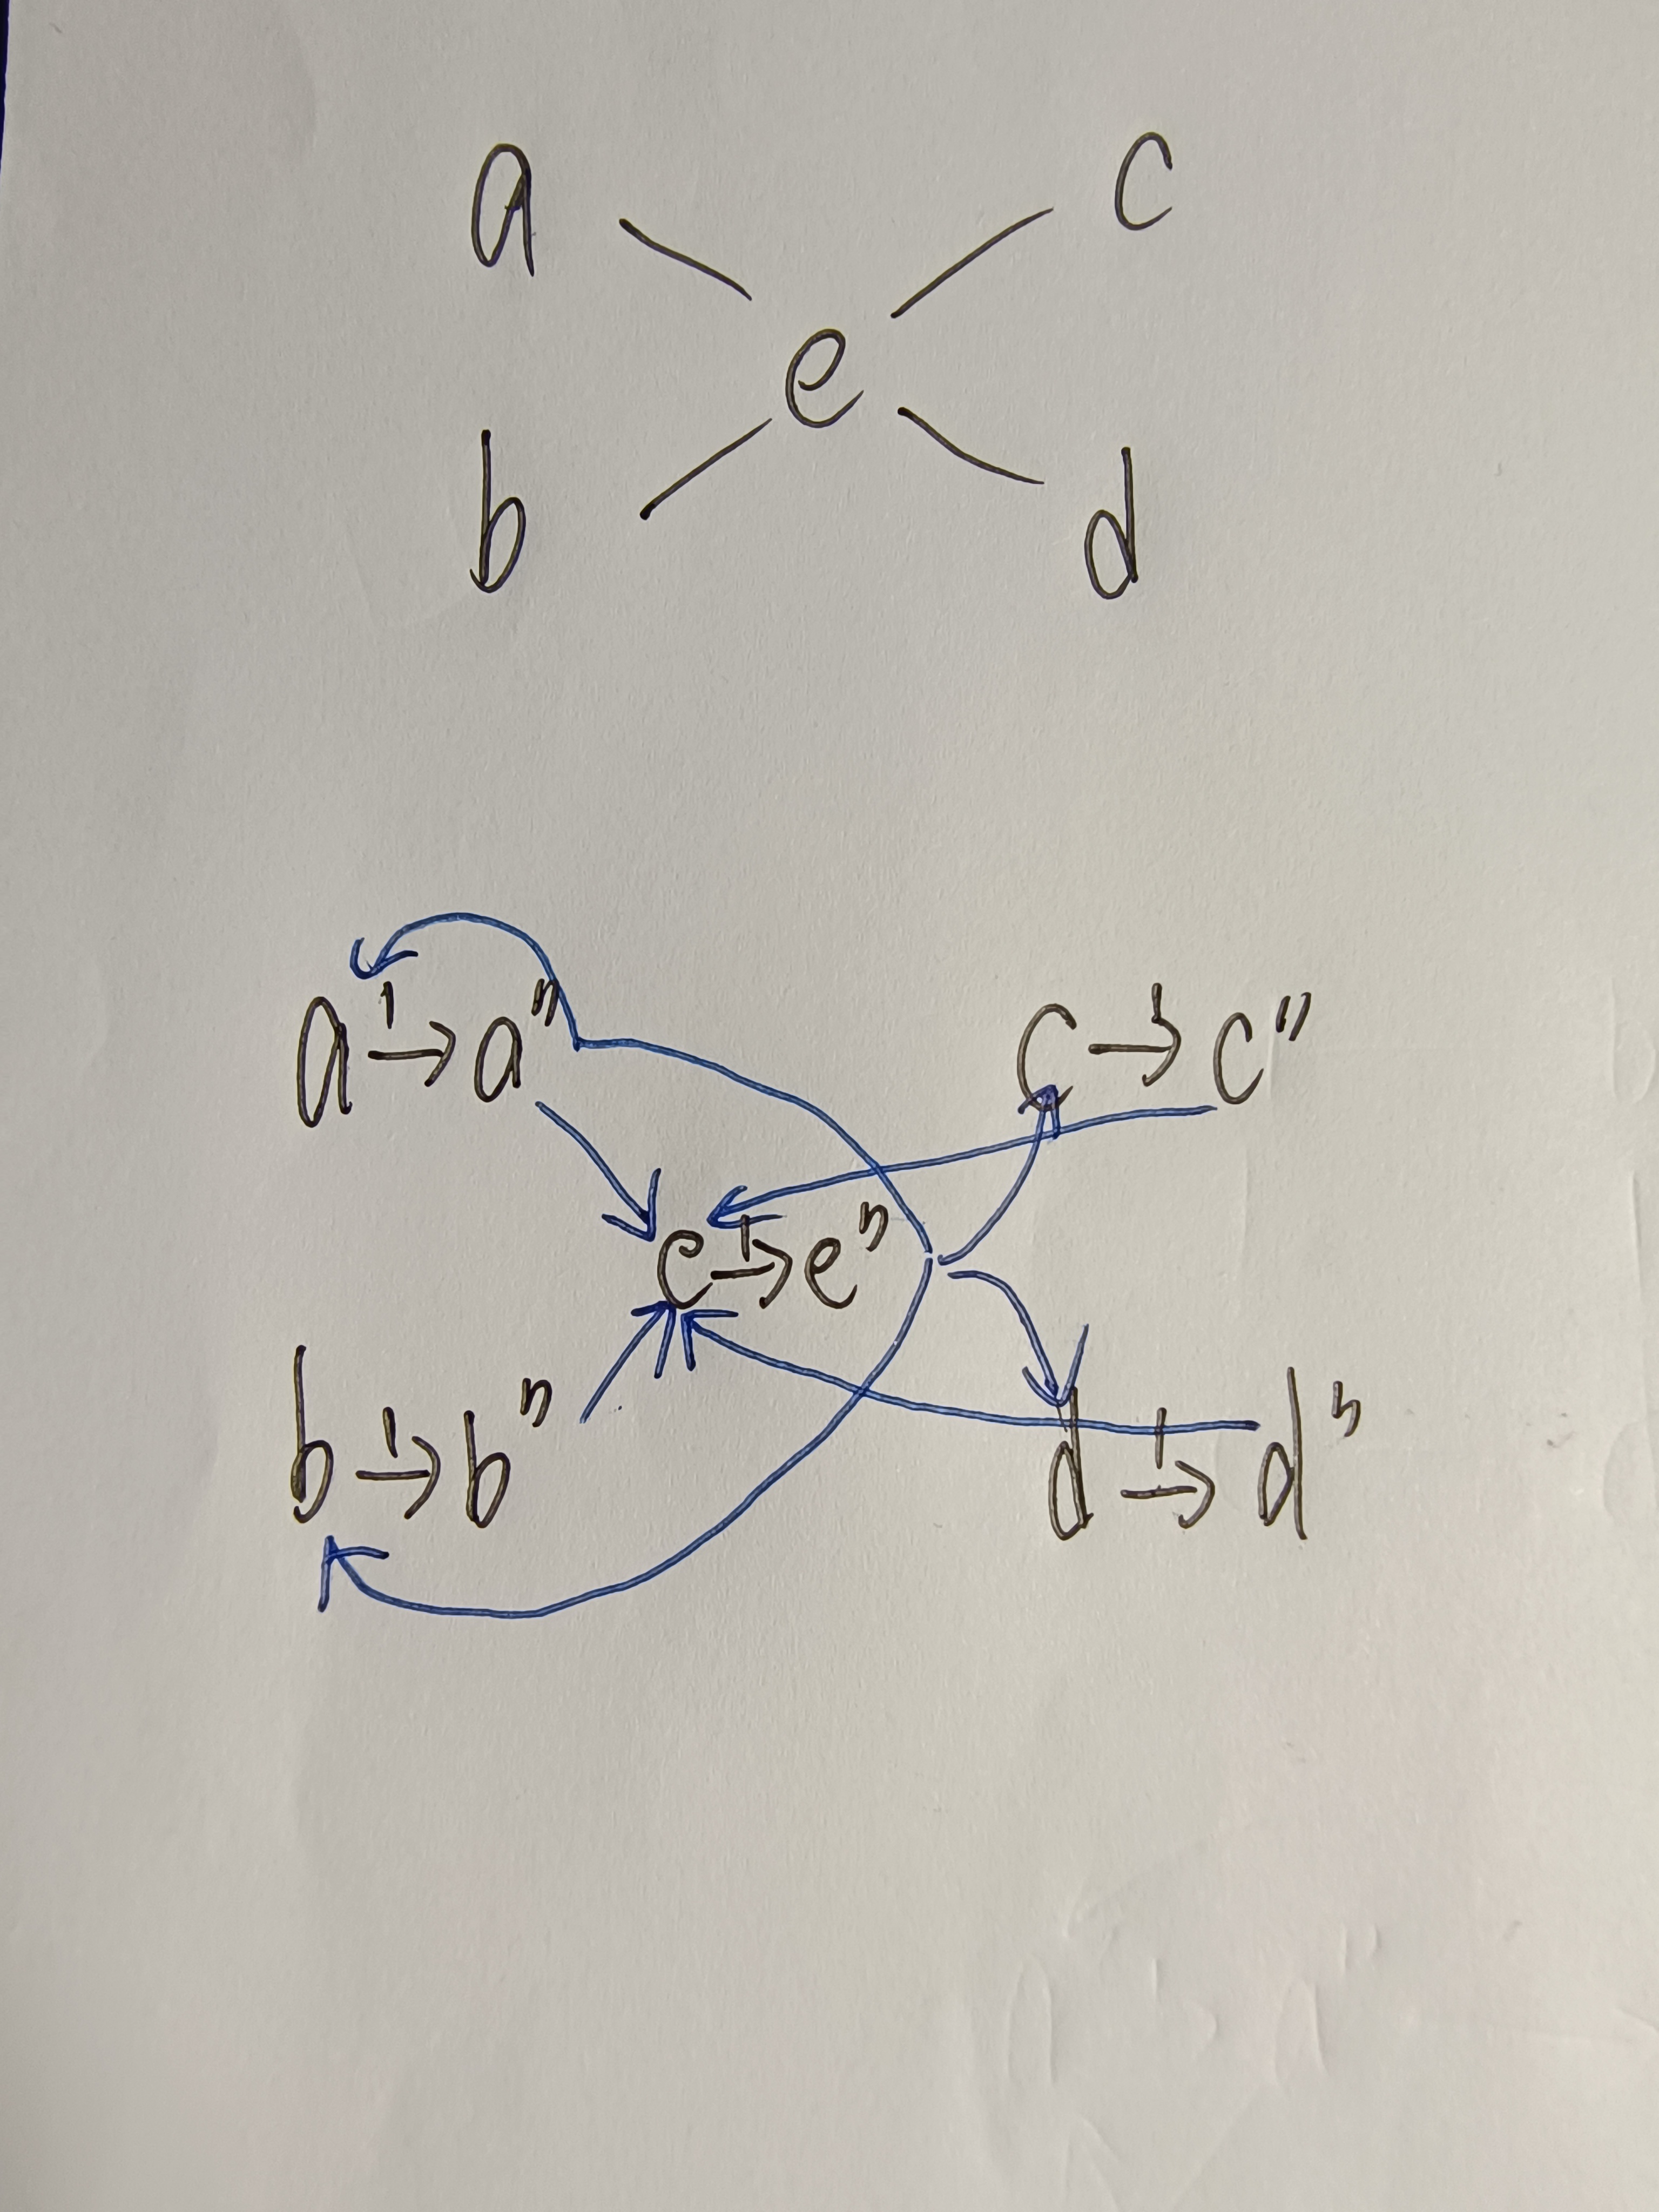 a c
e
b d
a →¹ a" c →¹ c"
e →¹ e"
b →¹ b" d →¹ d"